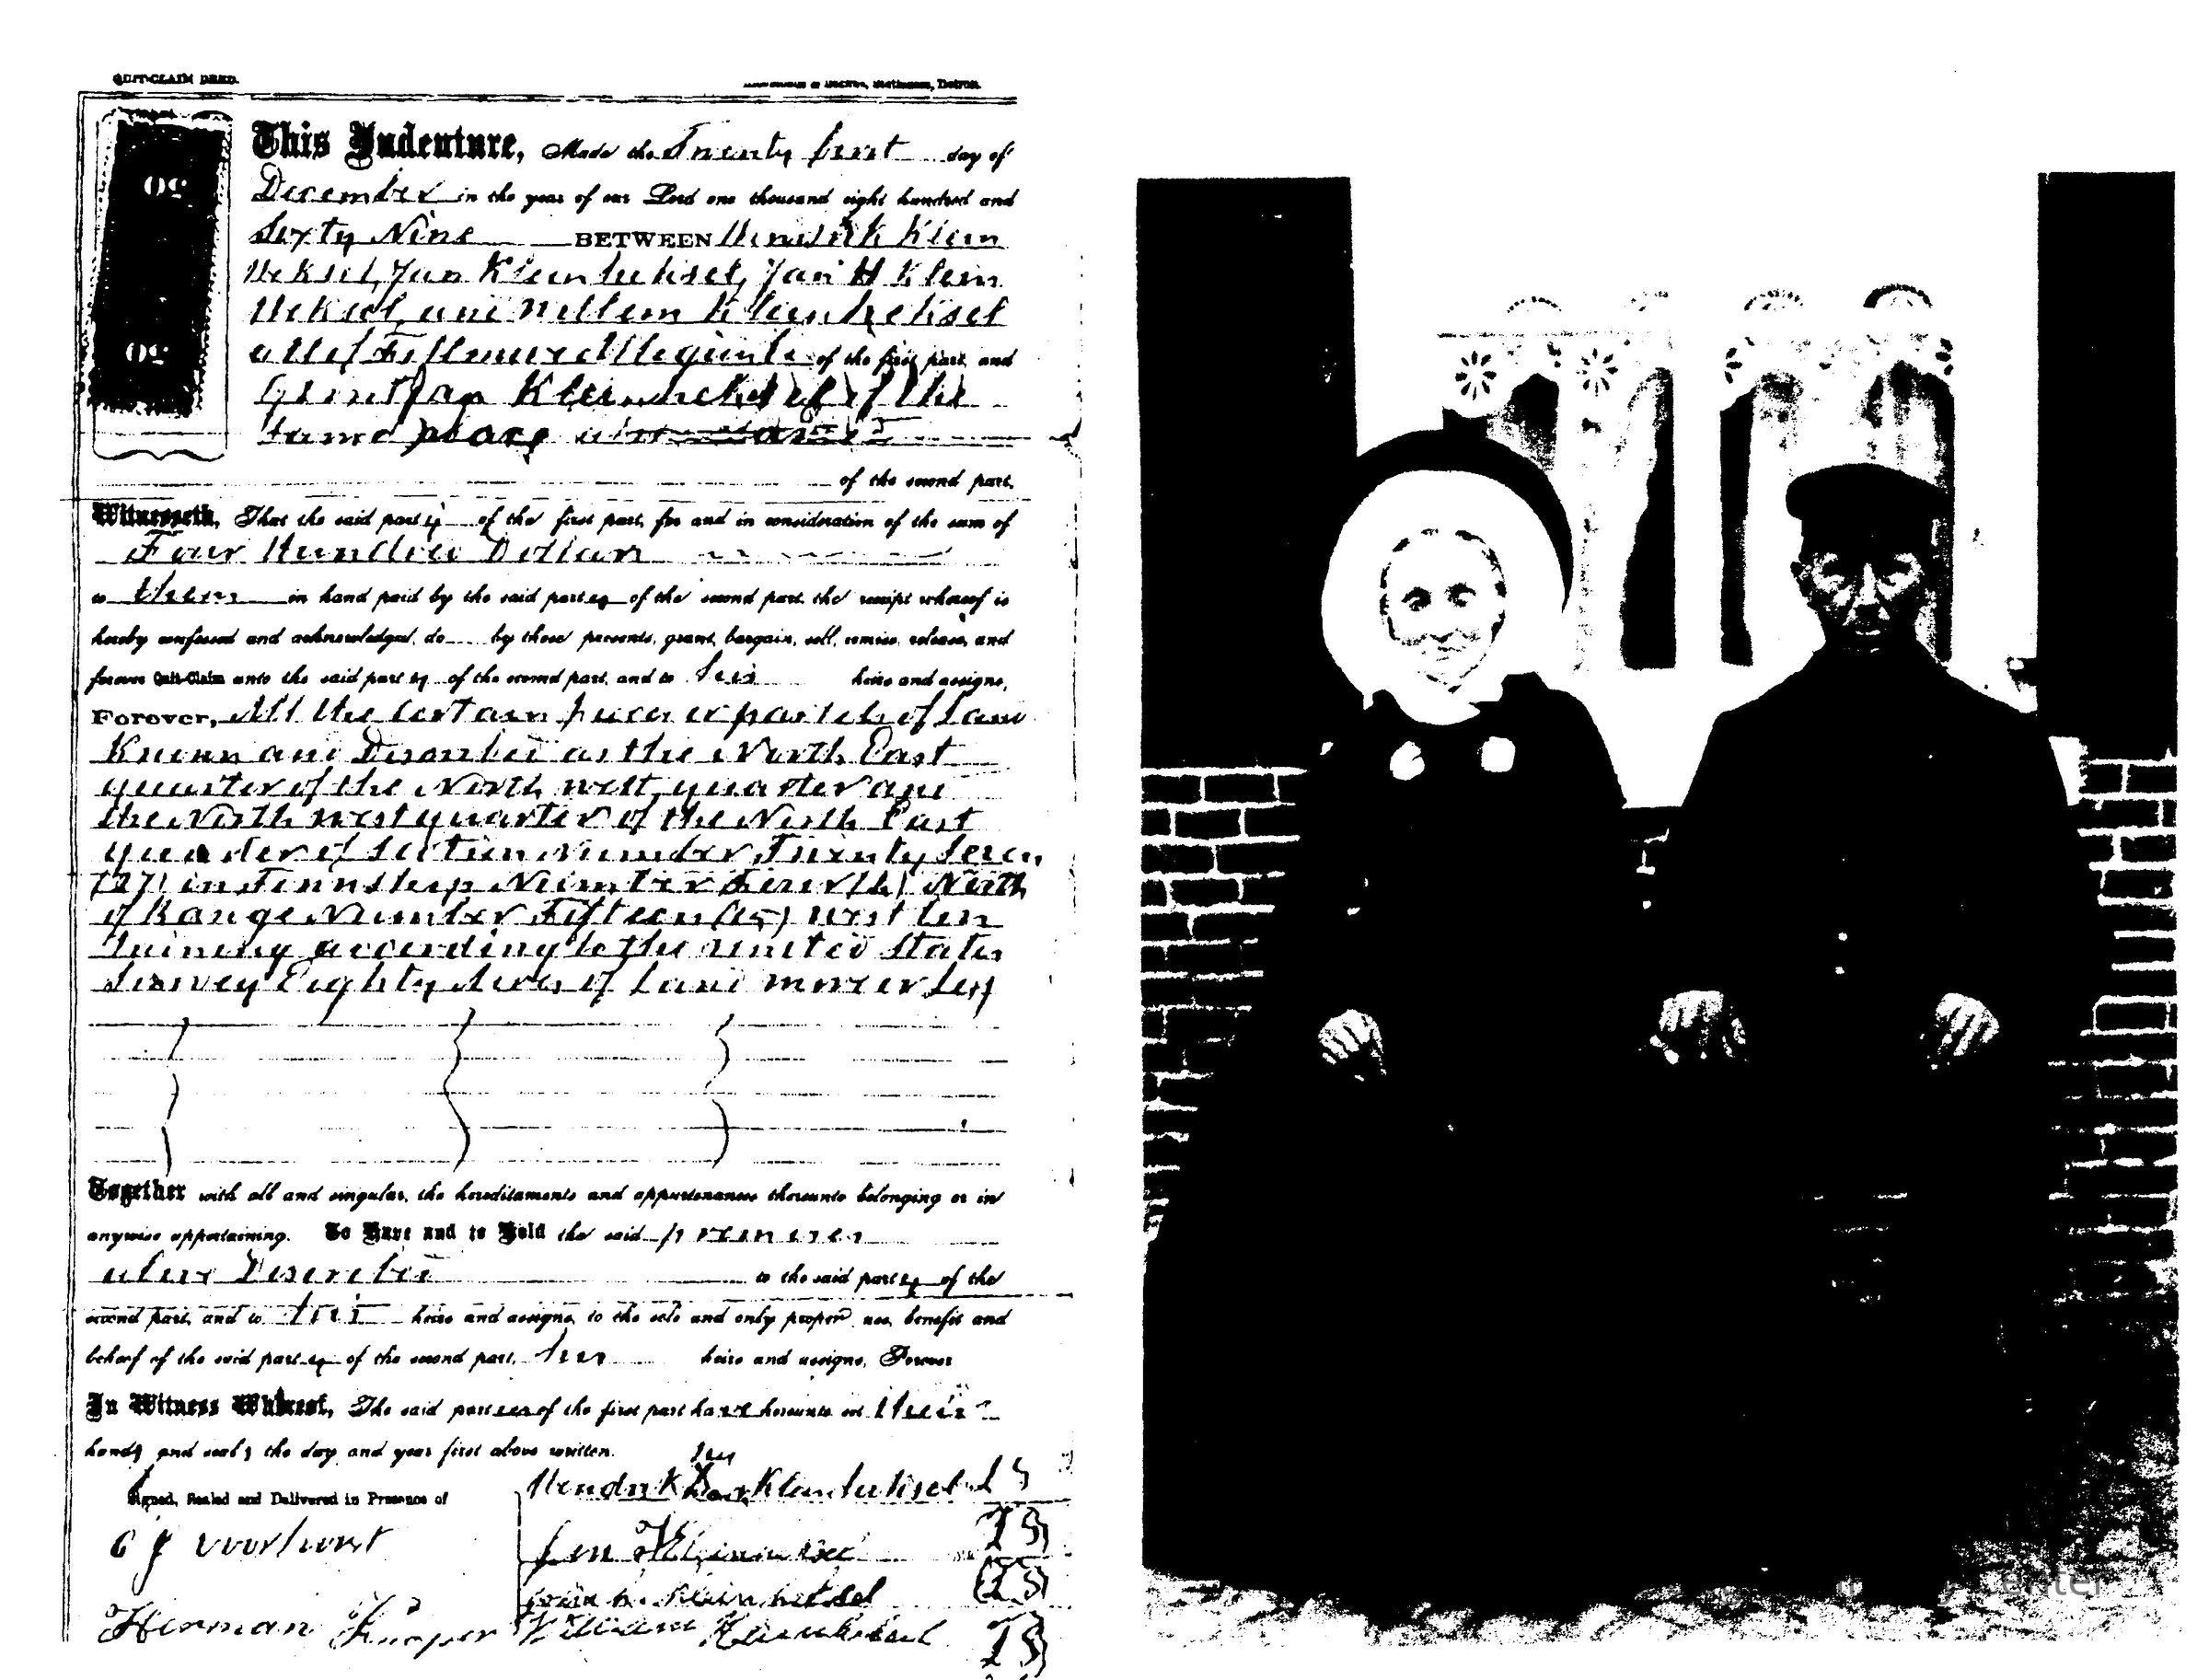 QUIT-CLAIM DEED.
Detroit.
50
50
This Indenture, Made the Twenty first day of
December in the year of our Lord one thousand eight hundred and
Sixty Nine BETWEEN Hendrik Klein
Heksel, Jan Kleinheksel, Jan H Klein
Heksel, and Willem Kleinheksel
all of Fillmore Allegan of the first part, and
Gerrit Jan Kleinheksel of the
same place
of the second part,
Witnesseth, That the said party of the first part, for and in consideration of the sum of
Four Hundred Dollars
to them in hand paid by the said party of the second part, the receipt whereof is
hereby confessed and acknowledged, do by these presents, grant, bargain, sell, remise, release, and
forever Quit-Claim unto the said party of the second part, and to his heirs and assigns,
Forever, All the certain piece or parcel of Land
Known and Described as the North East
quarter of the North west quarter and
the North west quarter of the North East
quarter of Section Number Twenty Seven
(27) in Township Number Four (4) North
of Range Number Fifteen (15) west Con
taining according to the united States
Survey Eighty Acres of Land more or Less
Together with all and singular, the hereditaments and appurtenances thereunto belonging or in
anywise appertaining. To Have and to Hold the said premises
above Described to the said party of the
second part, and to his heirs and assigns, to the sole and only proper use, benefit and
behoof of the said party of the second part, his heirs and assigns, Forever
In Witness Whereof, The said parties of the first part have hereunto set their
hands and seals the day and year first above written.
Signed, Sealed and Delivered in Presence of
his
Hendrik X Kleinheksel LS
mark
C J Voorhorst
LS
Jan H. Kleinheksel LS
Herman Kuiper William Kleinheksel LS
enter